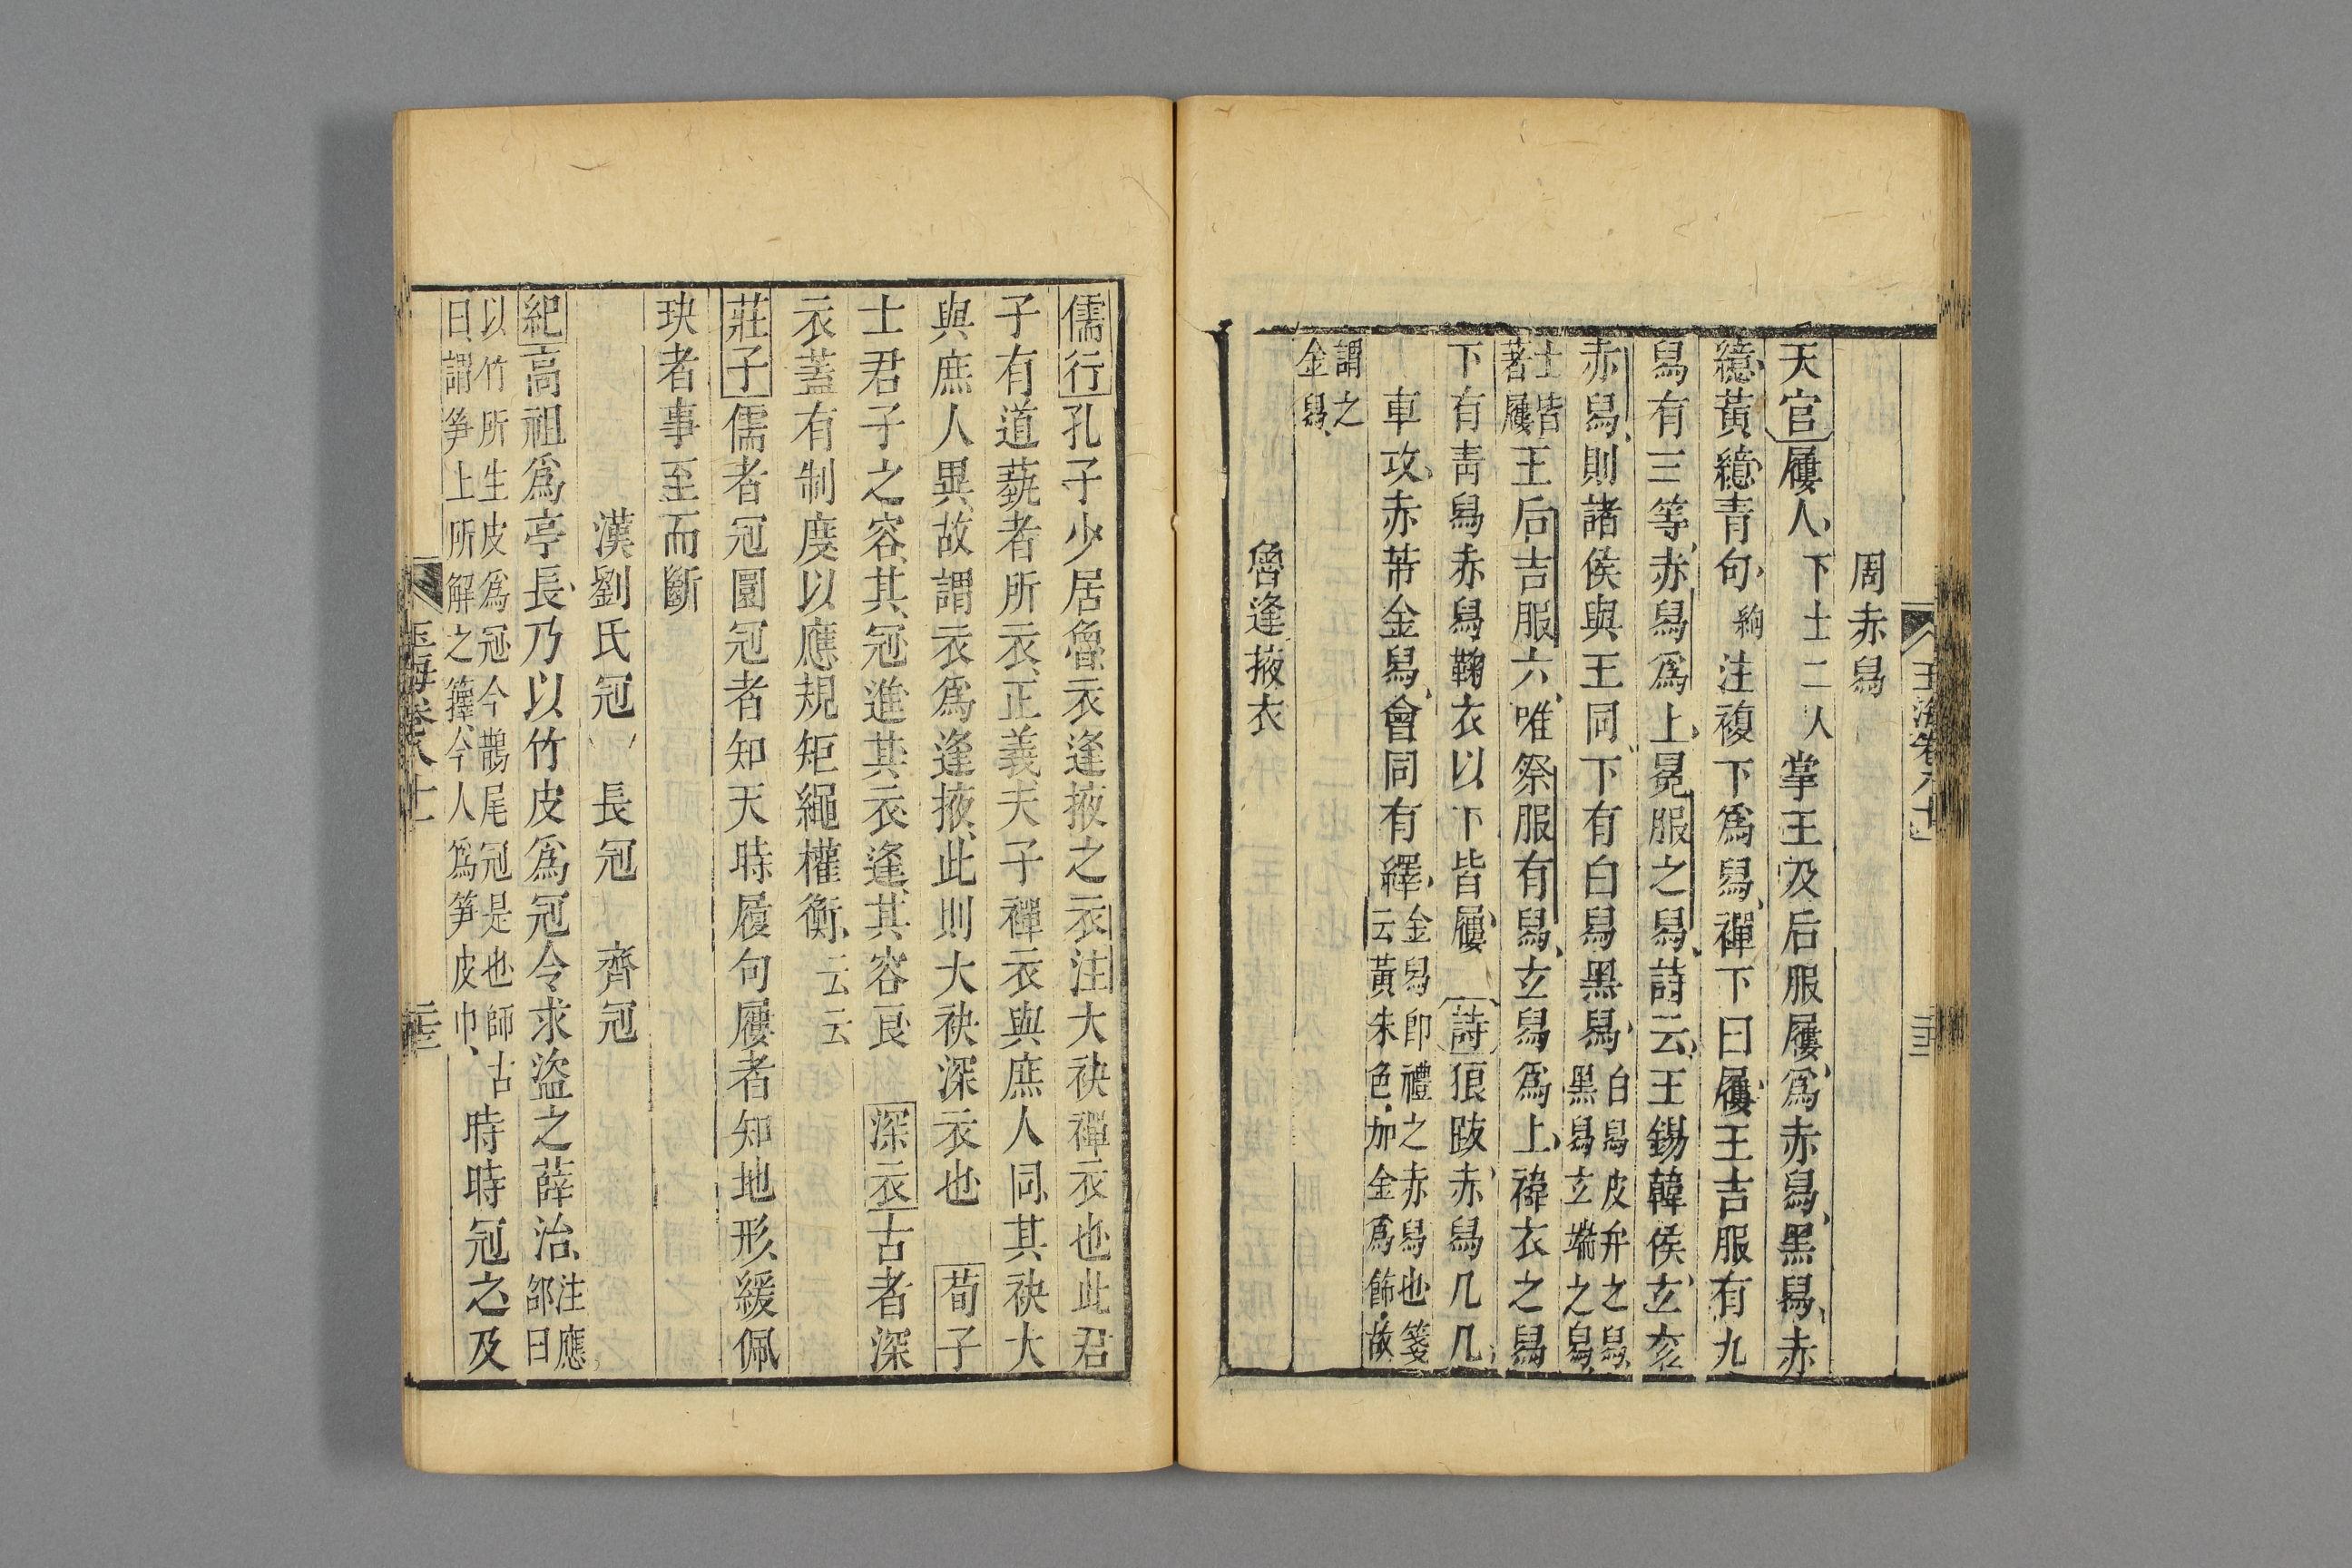 周赤舄
天官屨人下士二人掌王及后服屨爲赤舄黑舄赤
繶黃繶青句絇注複下爲舄禪下曰屨王吉服有九
舄有三等赤舄爲上冕服之舄詩云王錫韓侯玄衮
赤舄則諸侯與王同下有白舄黑舄白舄皮弁之舄黑舄玄端之舄
士皆著屨王后吉服六唯祭服有舄玄舄爲上褘衣之舄
下有青舄赤舄鞠衣以下皆屨詩狼跋赤舄几几
車攻赤芾金舄會同有繹金舄卽禮之赤舄也箋云黃朱色加金爲飾故
謂之金舄
魯逢掖衣
玉海卷八十二
儒行孔子少居魯衣逢掖之衣注大袂禪衣也此君
子有道蓺者所衣正義夫子禪衣與庶人同其袂大
與庶人異故謂衣爲逢掖此則大袂深衣也荀子
士君子之容其冠進其衣逢其容良深衣古者深
衣蓋有制度以應規矩繩權衡云云
莊子儒者冠圜冠者知天時履句屨者知地形緩佩
玦者事至而斷
漢劉氏冠 長冠 齊冠
紀高祖爲亭長乃以竹皮爲冠令求盜之薛治注應邵曰
以竹所生皮爲冠今鵲尾冠是也師古曰謂笋上所解之籜今人爲笋皮巾時時冠之及
玉海卷八十二